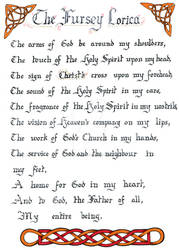 The Fursey Lorica
The arms of God be around my shoulders,
The touch of the Holy Spirit upon my head,
The sign of Christ's cross upon my forehead,
The sound of the Holy Spirit in my ears,
The fragrance of the Holy Spirit in my nostrils,
The vision of Heaven's company on my lips,
The work of God's Church in my hands,
The service of God and the neighbour in
my feet,
A home for God in my heart,
And to God, the Father of all,
My entire being.